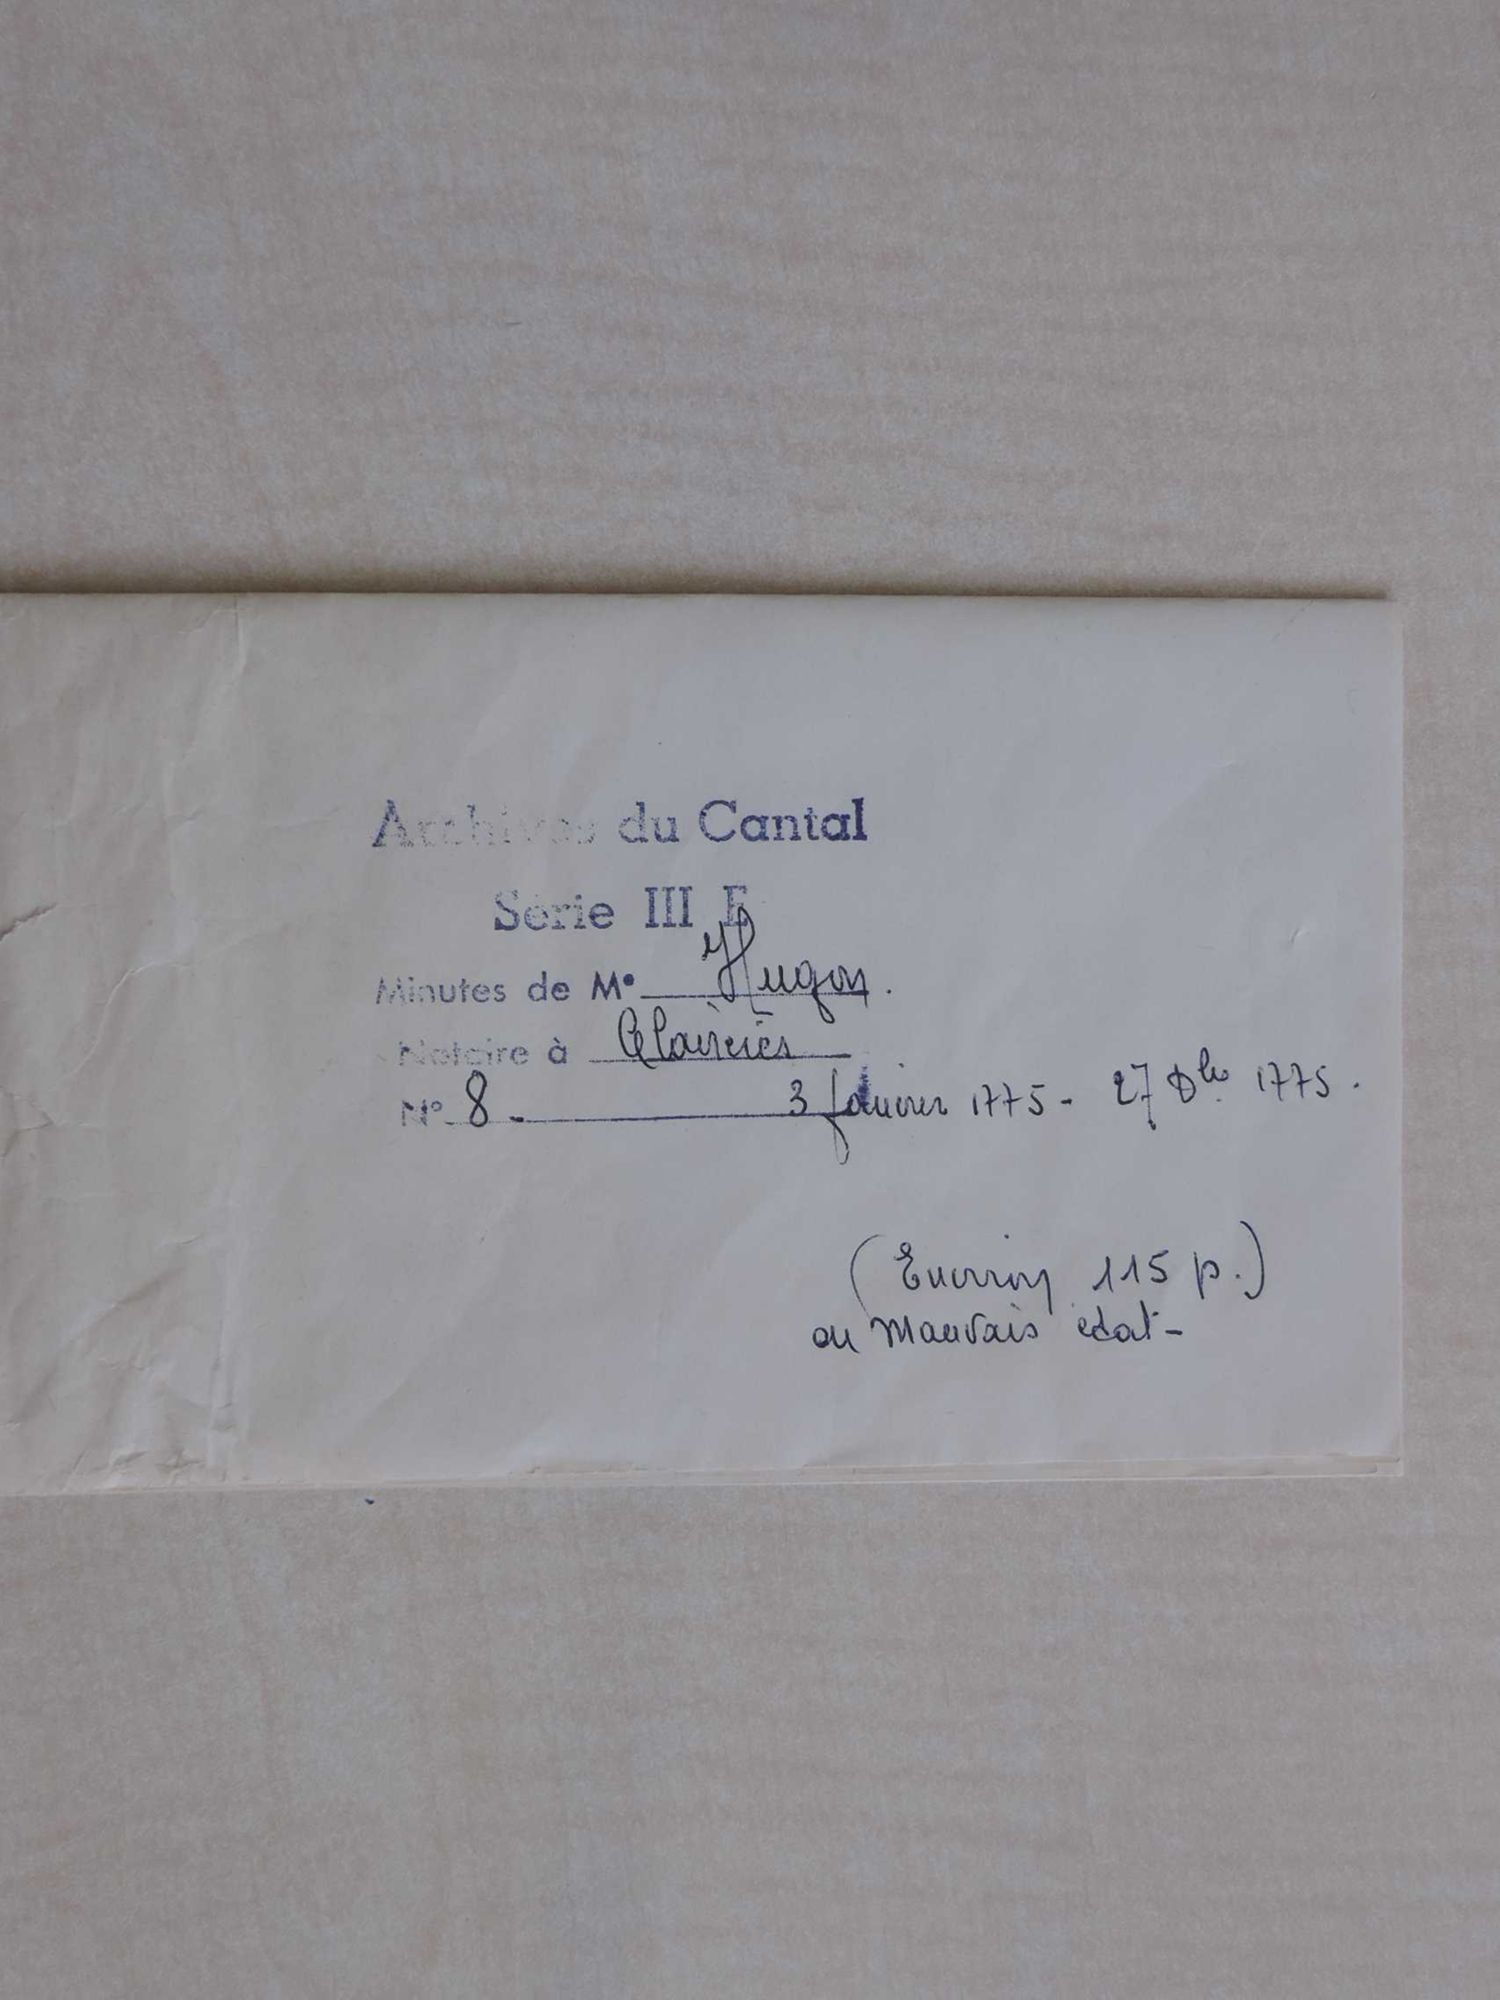 Archives du Cantal
Série III E
Minutes de Me Hugon.
Notaire à Clavières
N° 8 - 3 Janvier 1775 - 27 Dbre 1775.
(Environ 115 p.)
en Mauvais état-